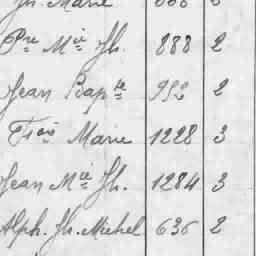 Jh. Marie
Pre Mie Jh. 888 2
Jean Bapte 992 2
Fcois Marie 1228 3
Jean Mie Jh. 1284 3
Alph. Jh. Michel 636 2